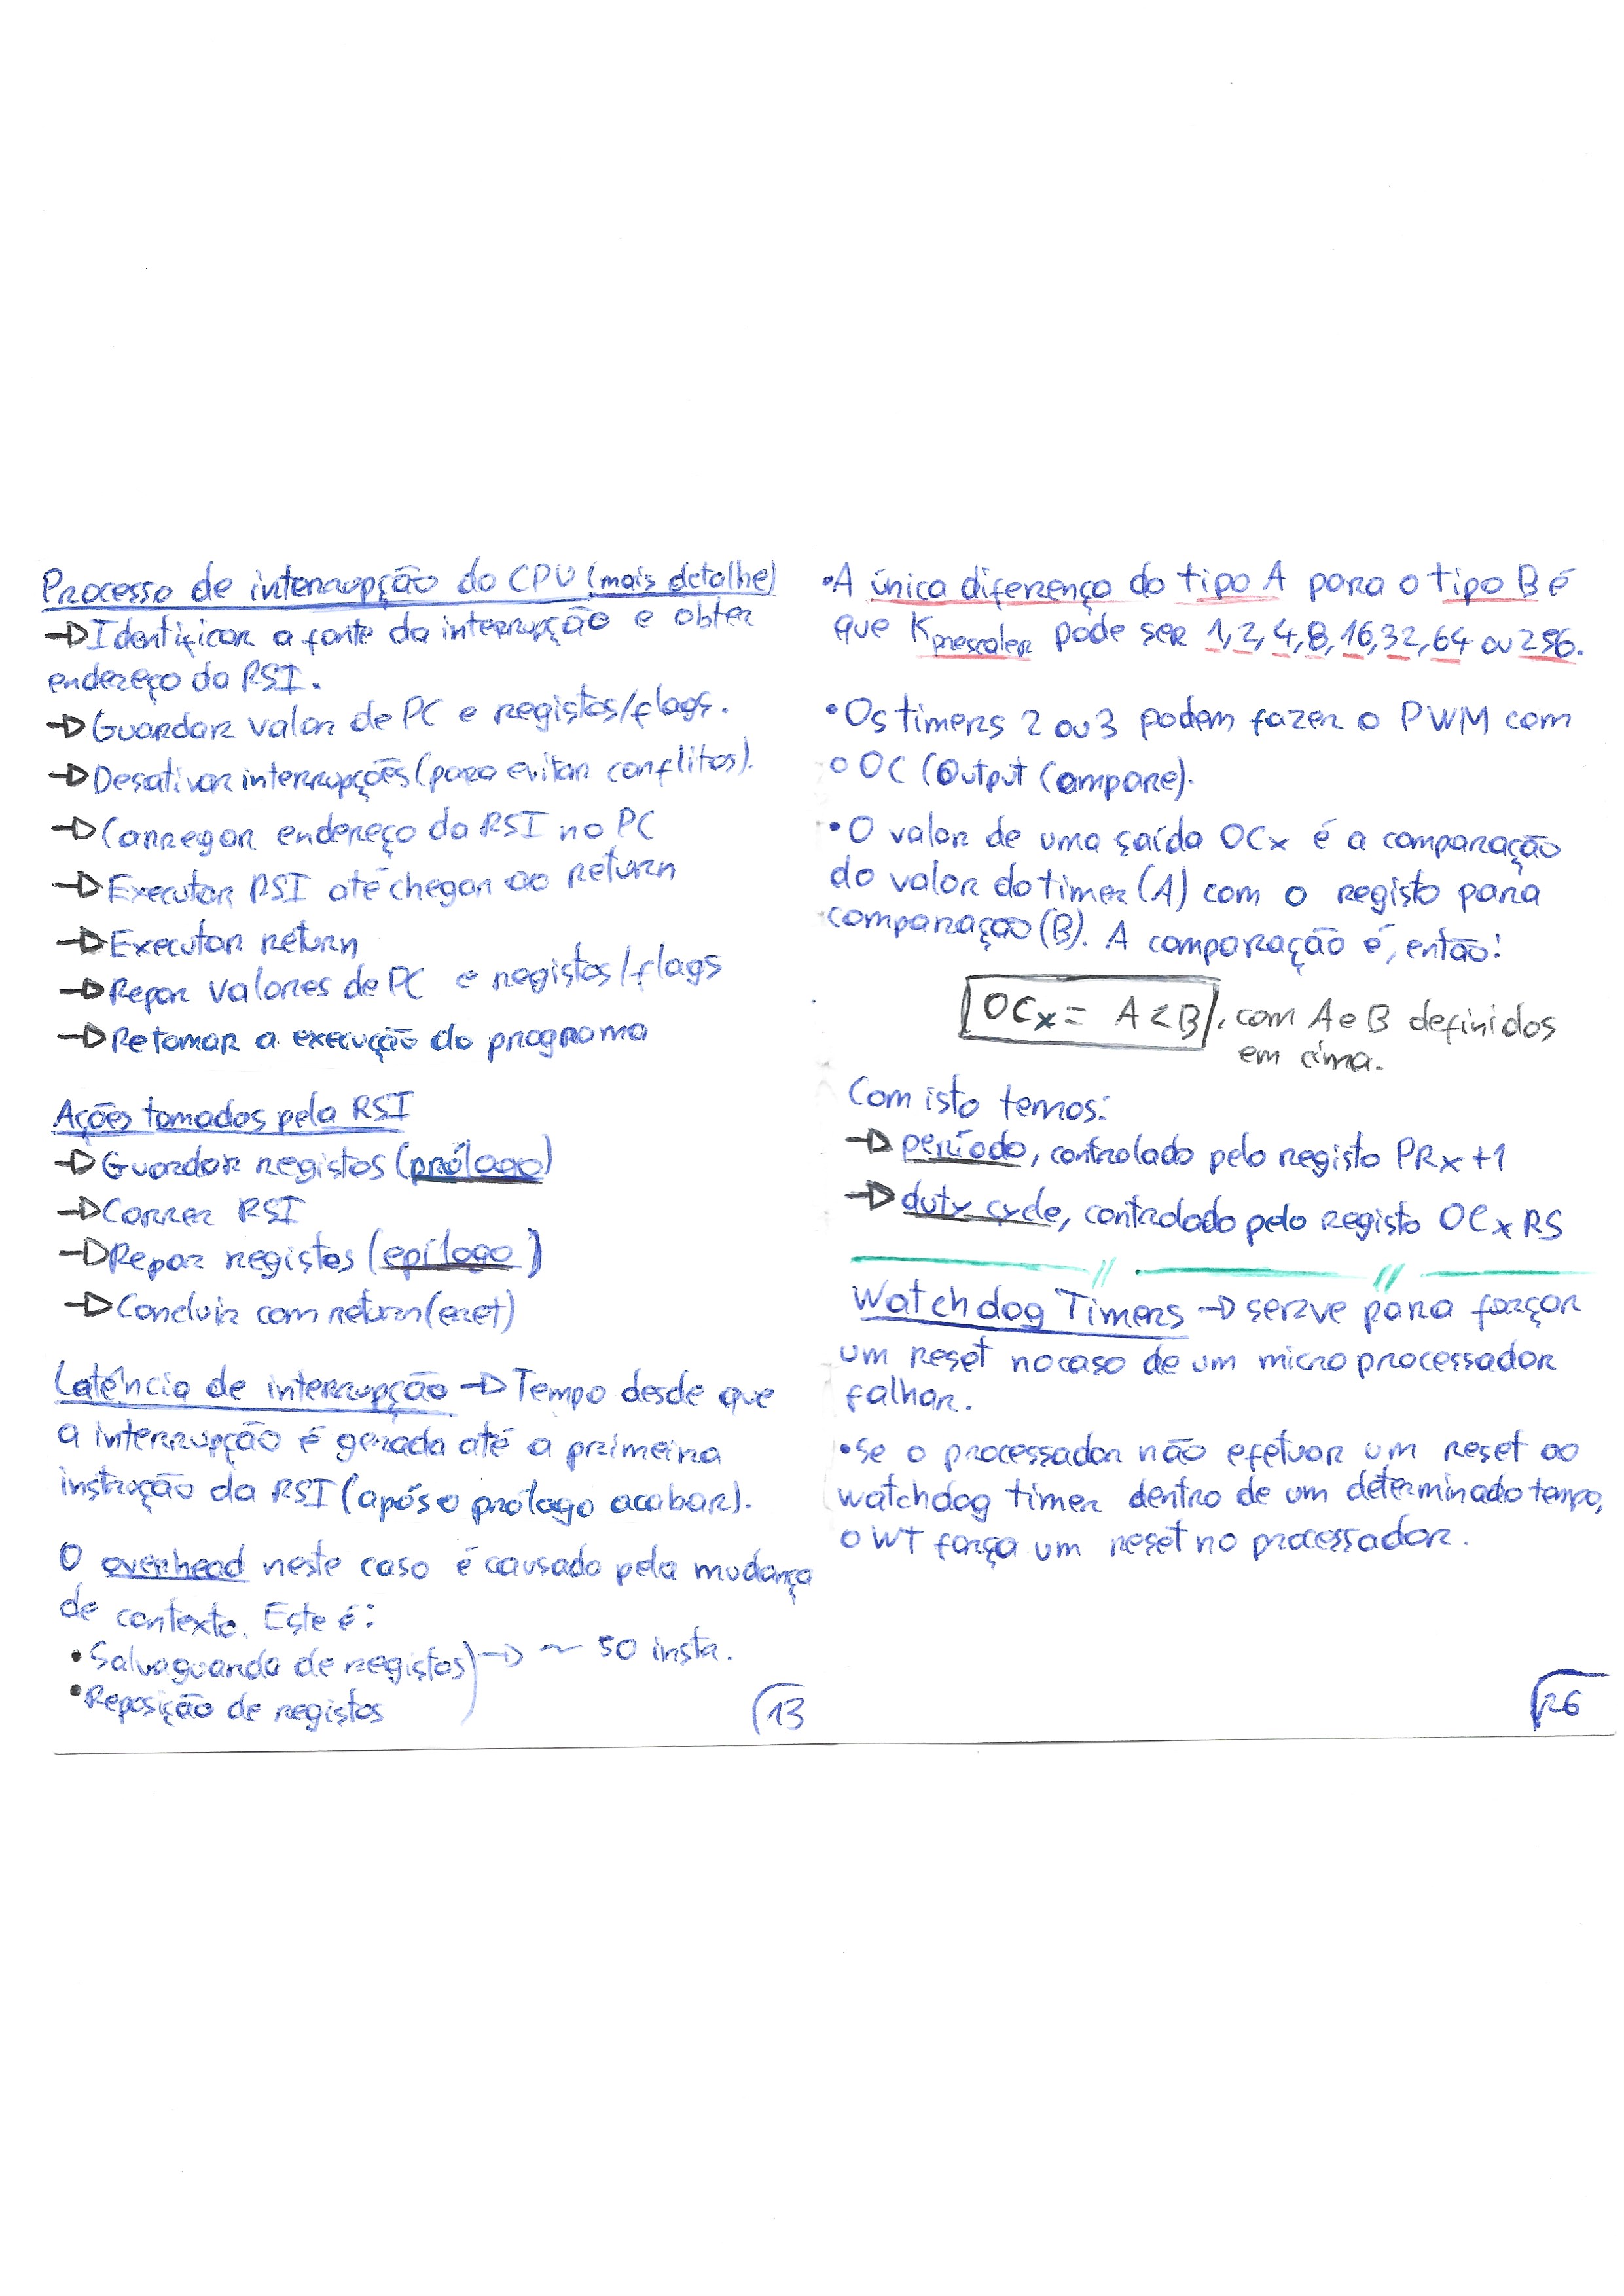 Processo de interrupção do CPU (mais detalhe)
→ Identificar a fonte da interrupção e obter
endereço da RSI.
→ Guardar valor de PC e registos/flags.
→ Desativar interrupções (para evitar conflitos).
→ Carregar endereço da RSI no PC
→ Executar RSI até chegar ao return
→ Executar return
→ Repor valores de PC e registos/flags
→ Retomar a execução do programa
Ações tomadas pela RSI
→ Guardar registos (prólogo)
→ Correr RSI
→ Repor registos (epílogo)
→ Concluir com return (eret)
Latência de interrupção → Tempo desde que
a interrupção é gerada até a primeira
instrução da RSI (após o prólogo acabar).
O overhead neste caso é causado pela mudança
de contexto. Este é:
• Salvaguarda de registos) → ~ 50 instr.
• Reposição de registos
13
• A única diferença do tipo A para o tipo B é
que Kprescaler pode ser 1, 2, 4, 8, 16, 32, 64 ou 256.
• Os timers 2 ou 3 podem fazer o PWM com
o OC (Output Compare).
• O valor de uma saída OCx é a comparação
do valor do timer (A) com o registo para
comparação (B). A comparação é, então:
OCx = A < B, com A e B definidos
em cima.
Com isto temos:
→ período, controlado pelo registo PRx + 1
→ duty cycle, controlado pelo registo OCxRS
Watchdog Timers → serve para forçar
um reset no caso de um microprocessador
falhar.
• Se o processador não efetuar um reset ao
watchdog timer dentro de um determinado tempo,
o WT força um reset no processador.
26